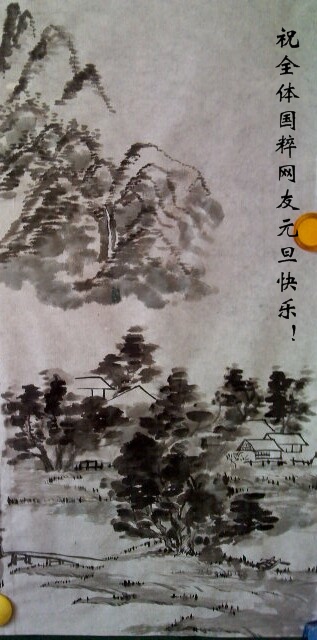 祝全体国粹网友元旦快乐！